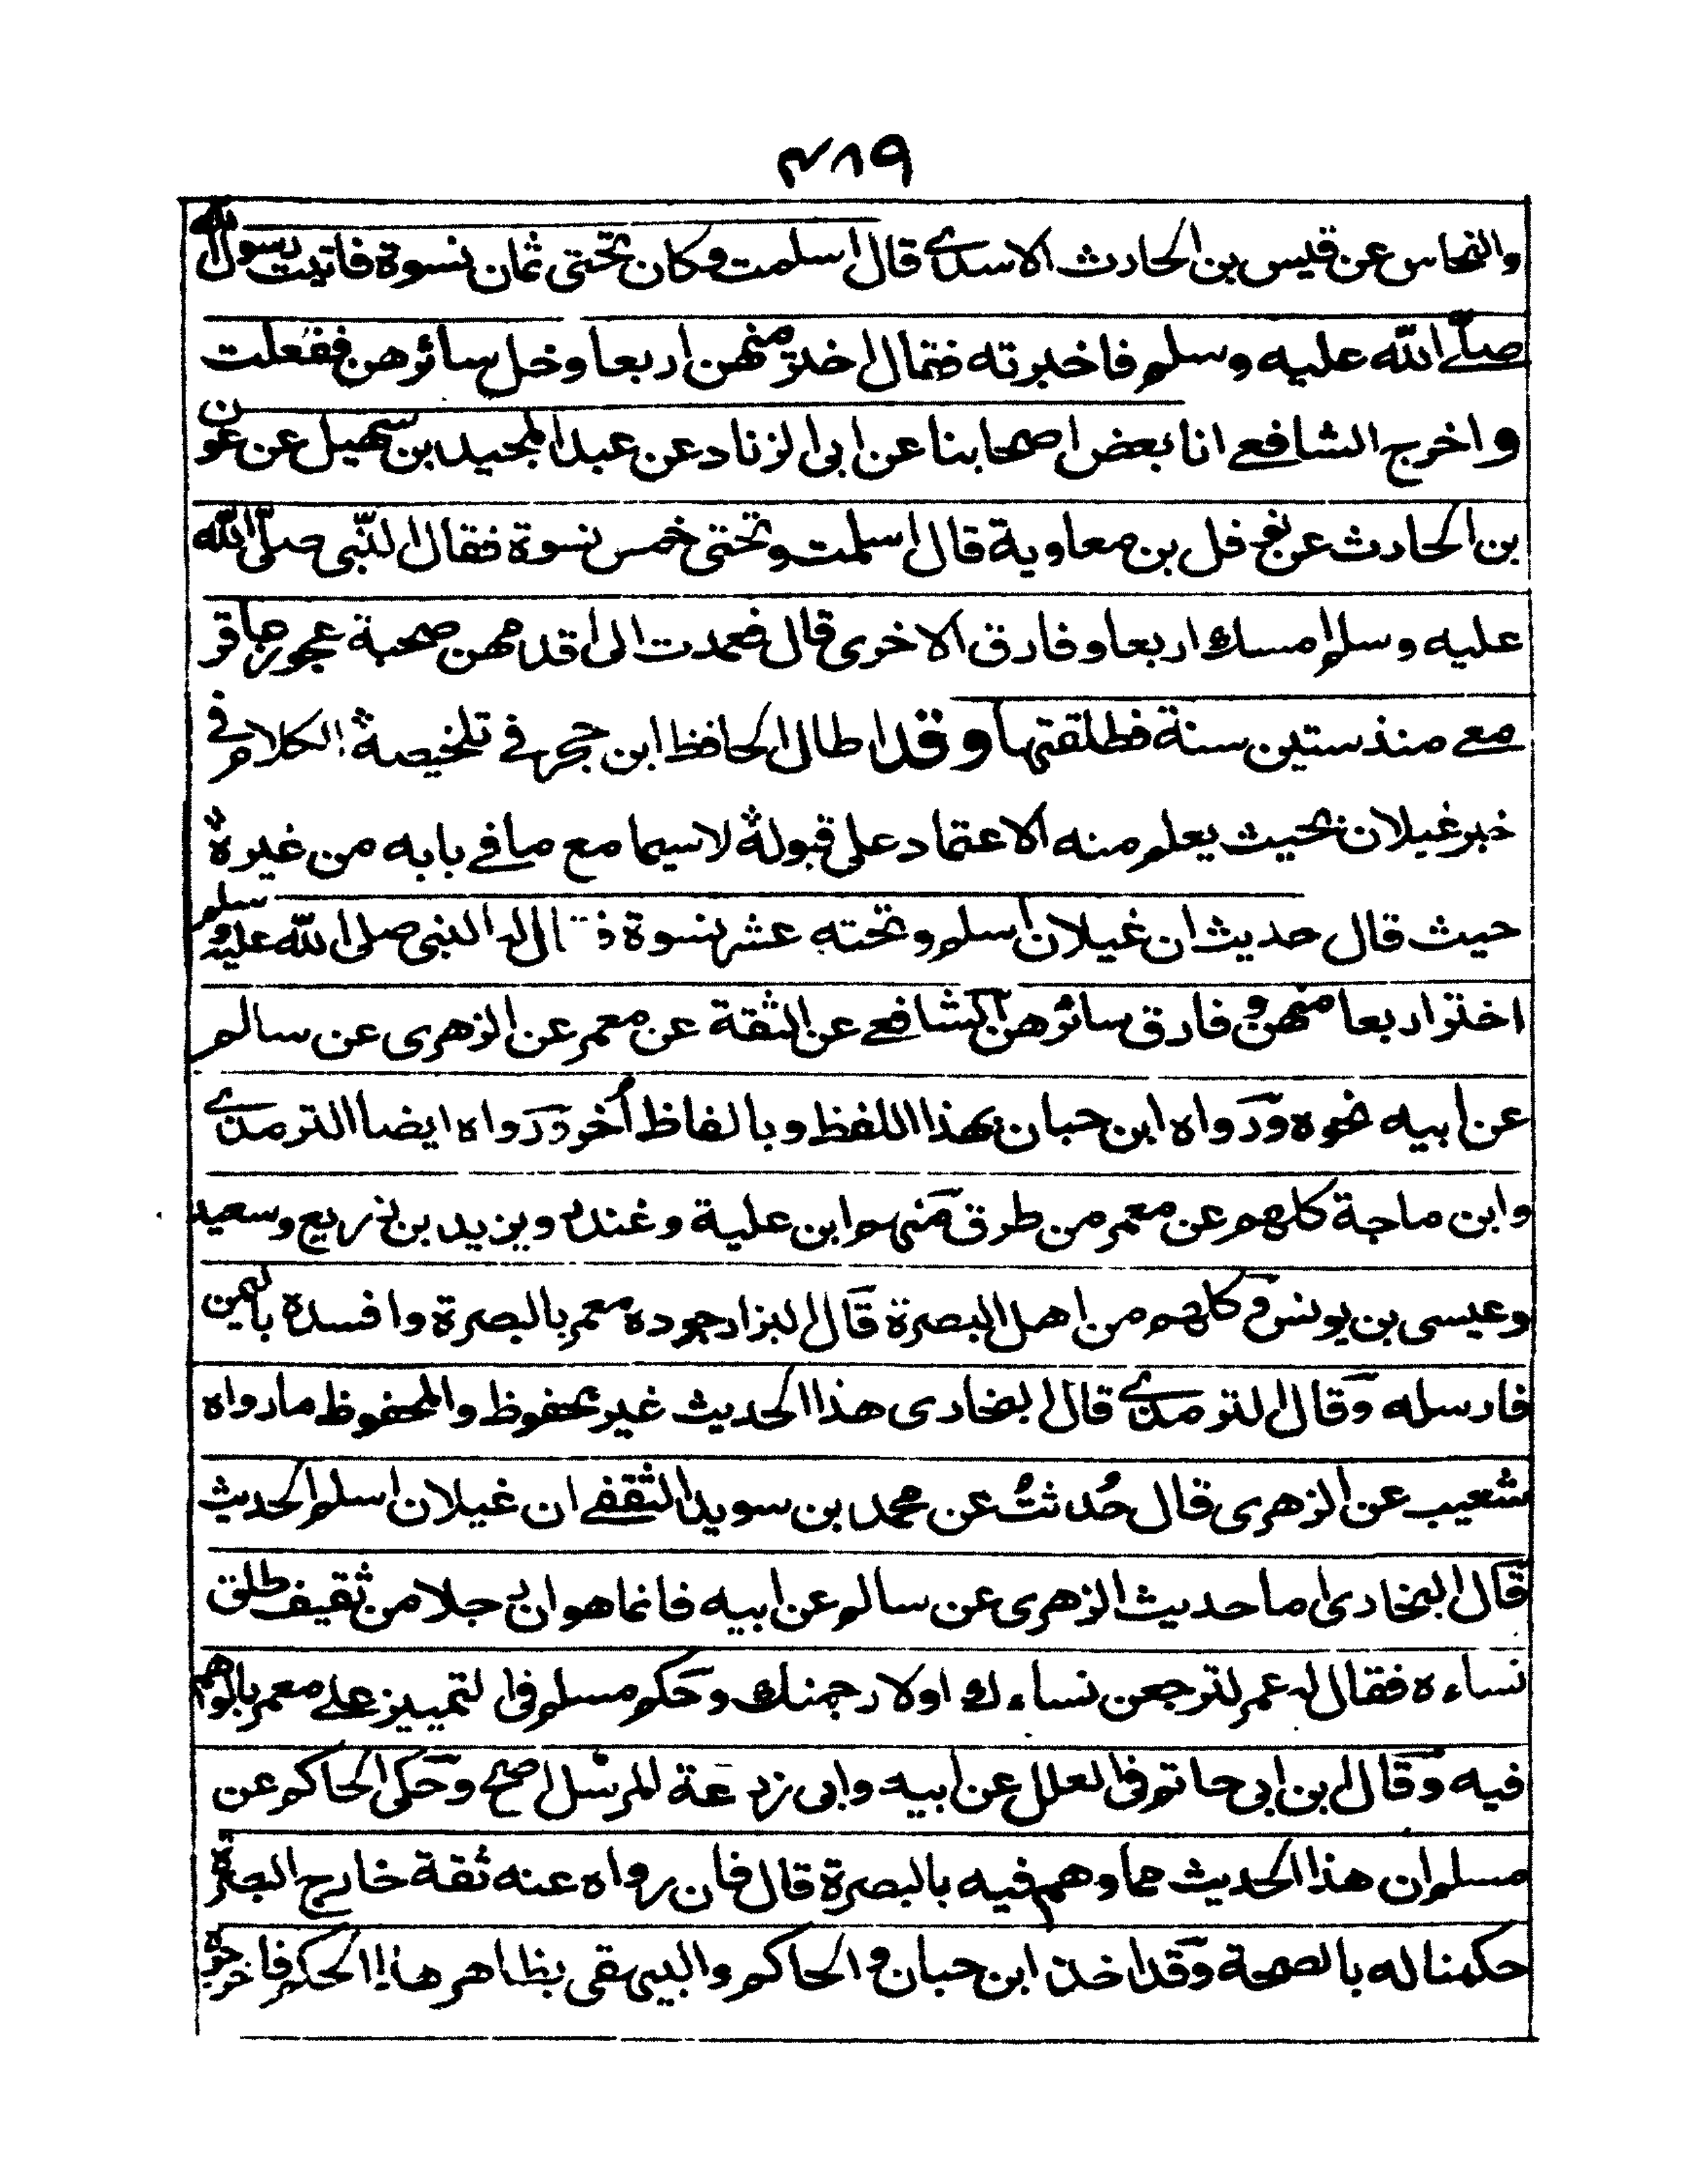 ٤٨٩
والنحاس عن قيس بن الحارث الاسدي قال اسلمت وكان تحتى ثمان نسوة فاتيت رسول الله
صلے الله عليه وسلم فاخبرته فقال اختر منهن اربعا وخل سائرهن ففعلت
واخرج الشافعے انا بعض اصحابنا عن ابى الزناد عن عبد المجيد بن سهيل عن عون
بن الحارث عن نوفل بن معاوية قال اسلمت وتحتى خمس نسوة فقال النبى صلى الله
عليه وسلم امسك اربعا وفارق الاخرى قال فعمدت الى اقدمهن صحبة عجوز عاقر
معے منذ ستين سنة فطلقتها وقد اطال الحافظ ابن حجر فے تلخيصه الكلام فے
خبر غيلان بحيث يعلم منه الاعتماد على قبوله لاسيما مع ما فے بابه من غيره
حيث قال حديث ان غيلان اسلم وتحته عشر نسوة فقال له النبى صلى الله عليه وسلم
اختر اربعا منهن وفارق سائرهن الشافعے عن الثقة عن معمر عن الزهرى عن سالم
عن ابيه نحوه ورواه ابن حبان بهذا اللفظ وبالفاظ أخر ورواه ايضا الترمذے
وابن ماجة كلهم عن معمر من طرق منهم ابن علية وغندر ويزيد بن زريع وسعيد
وعيسى بن يونس وكلهم من اهل البصرة قال البزار جوده معمر بالبصرة وافسده باليمن
فارسله وقال الترمذے قال البخارى هذا الحديث غير محفوظ والمحفوظ ما رواه
شعيب عن الزهرى قال حُدثتُ عن محمد بن سويد الثقفے ان غيلان اسلم الحديث
قال البخارى اما حديث الزهرى عن سالم عن ابيه فانما هو ان رجلا من ثقيف طلق
نساءه فقال له عمر لترجعن نساءك اولا رجمنك وحكم مسلم فى التمييز علے معمر بالوهم
فيه وقال ابن ابى حاتم فى العلل عن ابيه وابى زرعة المرسل اصح وحكى الحاكم عن
مسلم ان هذا الحديث مما وهم فيه بالبصرة قال فان رواه عنه ثقة خارج البصرة
حكمنا له بالصحة وقد اخذ ابن حبان والحاكم والبيهقى بظاهر هذا الحكم فاخرجوه